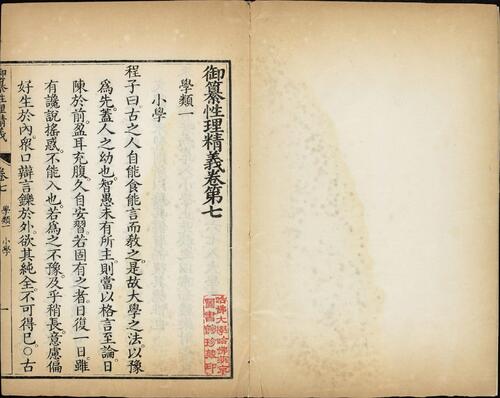 御纂性理精義卷第七
學類一
小學
程子曰古之人自能食能言而敎之是故大學之法以豫
爲先蓋人之幼也智愚未有所主則當以格言至論日
陳於前盈耳充腹久自安習若固有之者日復一日雖
有讒說搖惑不能入也若爲之不豫及乎稍長意慮偏
好生於內衆口辯言鑠於外欲其純全不可得已○古
御纂性理精義
卷七
學類一
小學
一
哈佛大學哈佛燕京
圖書館珍藏印